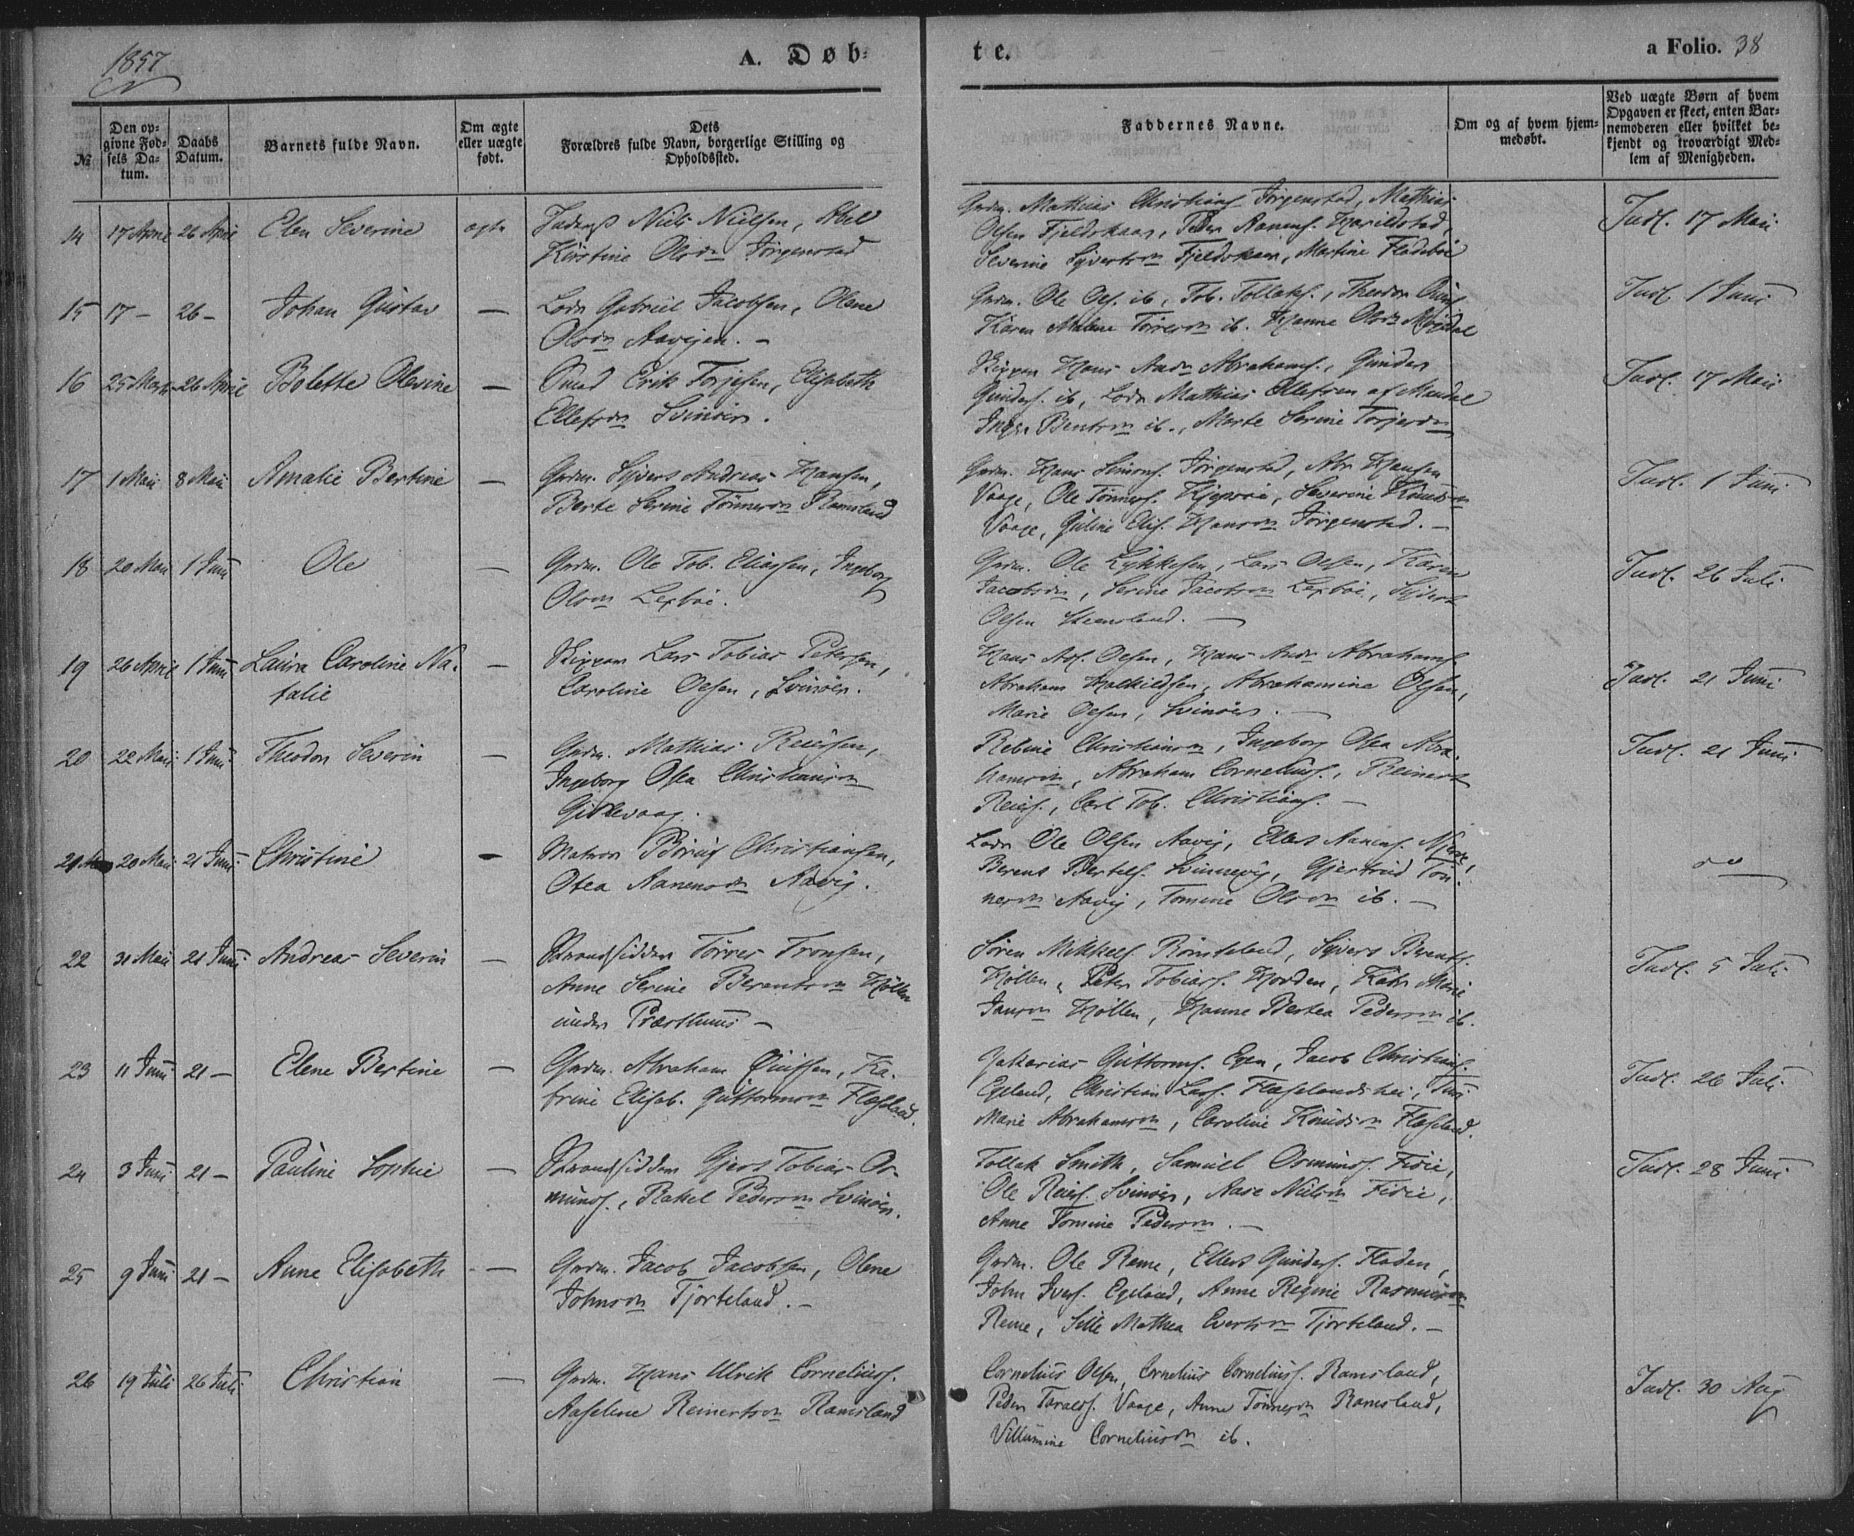 1857
A. Døb-
te.
a Folio. 38
№
Den op-
givne Fød-
sels Da-
tum.
Daabs
Datum.
Barnets fulde Navn.
Om ægte
eller uægte
født.
Dets
Forældres fulde Navn, borgerlige Stilling og
Opholdssted.
Faddernes Navne.
Om og af hvem hjem-
medøbt.
Ved uægte Børn af hvem
Opgaven er skeet, enten Bar-
nemoderen eller hvilket be-
kjendt og troværdigt Med-
lem af Menigheden.
14 17 April 26 April Elen Severine ægte Niels Nielsen, Abel
Kirstine Olsdn Jørgenstad
Gmdn. Mathias Christians. Jørgenstad, Mathias
Olsen Fjeldskaar, Peder Aanens. Haraldstad,
Severine Syvertsdn Fjeldskaar, Martine Fladebøe
Indl. 17 Mai
15 17 - 26 - Johan Gustav — Lods Gabriel Jacobsen, Olene
Olsdn Aavigen. -
Gmdn. Ole Ols. ib, Tob. Tollaks., Theodor
Karen Malene Tørresdn ib. Hanne Olsdn
Indl. 1 Juni
16 25 Marts 26 April Bolette Olevine — Erik Torjesen, Elisabeth
Ellefsdn Svinøer.
Skipper Hans Andr. Abrahams., Gunder
Gunders. ib, Lods Mathias Ellefsen af Mandal
Inger Bentsdn ib., Marte Serine Torjesdn
Indl. 17 Mai
17 1 Mai 8 Mai Amalie Bertine — Gmdn. Syvert Andreas Hansen,
Berte Serine Tønnesdn Ramsland
Gmdn. Hans Simons. Jørgenstad, Abr. Hansen
Vaage, Ole Tønnes. Kjepsøe, Severine Knudsdn
Vaage, Guline Elis. Hansdn Jørgenstad. -
Indl. 1 Juni
18 20 Mai 1 Juni Ole — Gmdn. Ole Tob. Eliassen, Ingeborg
Olsdn Lexbøe.
Gmdn. Ole Lykkesen, Lars Olsen, Karen
Jacobsdn, Serine Jacobsdn Lexbøe, Syvert
Olsen Steensland. -
Indl. 26 Juli
19 26 April 1 Juni Laura Caroline Na-
talie
— Skipper Lars Tobias Petersen,
Caroline Olsen, Svinøer.
Hans Ad. Olsen, Hans Andr. Abrahams.
Abraham Halkildsen, Abrahamine Olsen,
Marie Olsen, Svinøer. -
Indl. 21 Juni
20 22 Mai 1 Juni Theodor Severin — Gmdn. Mathias Reiersen,
Ingeborg Osea Christiansdn
Gitlevaag.
Rebine Christiansdn, Ingeborg Osea Abra-
hamsdn, Abraham Cornelius., Reinert
Reiers., Carl Tob. Christians. -
Indl. 21 Juni
21 20 Mai 21 Juni Christine — Matros Børuf Christiansen,
Osea Aanensdn Aavig.
Lods Ole Olsen Aavig, Elias Aanens.
Berent Bertels. Svinnevig, Gjertrud Tøn-
nesdn Aavig, Tomine Olsdn ib. -
do
22 31 Mai 21 Juni Andreas Severin — Strandsidder Tørres Tronsen,
Anne Serine Berentsdn Høllen
under Præsthuus -
Søren Mikkels. Rømteland, Syvert Berents.
Høllen, Peter Tobias. Hovden, Kath. Marie
Jansdn Høllen, Hanne Bertea Pedersdn ib.
Indl. 5 Juli
23 11 Juni 21 - Elene Bertine — Gmdn. Abraham Ouifsen, Ka-
trine Elisab. Guttormsdn Flæsland.
Zakarias Guttorms. Egen, Jacob Christians.
Egeland, Christian Lars. Flæslandshei,
Marie Abrahamsdn, Caroline Knudsdn Flæsland.
Indl. 26 Juli
24 3 Juni 21 - Pauline Sophie — Strandsidder Gjert Tobias Os-
munds., Rakel Pedersdn Svinøer.
Tollak Smith, Samuel Osmunds. Fidie,
Ole Reiers. Svinøer, Aase Nielsdn Fidie,
Anne Tomine Pedersdn. -
Indl. 28 Juni
25 9 Juni 21 - Anne Elisabeth — Gmdn. Jacob Jacobsen, Olene
Johnsdn Tjorteland. -
Gmdn. Ole Reme, Ellert Gunders. Fladen,
John Ivers. Egeland, Anne Regine Rasmusdn
Reme, Sille Mathea Evertsdn Tjorteland. -
26 19 Juli 26 Juli Christian — Gmdn. Hans Ulrik Cornelius.
Aaselene Reinertsdn Ramsland
Cornelius Olsen, Cornelius Cornelius. Ramsland,
Peder Taralds. Vaage, Anne Tønnesdn Ramsland,
Villumine Corneliusdn ib.
Indl. 30 Aug